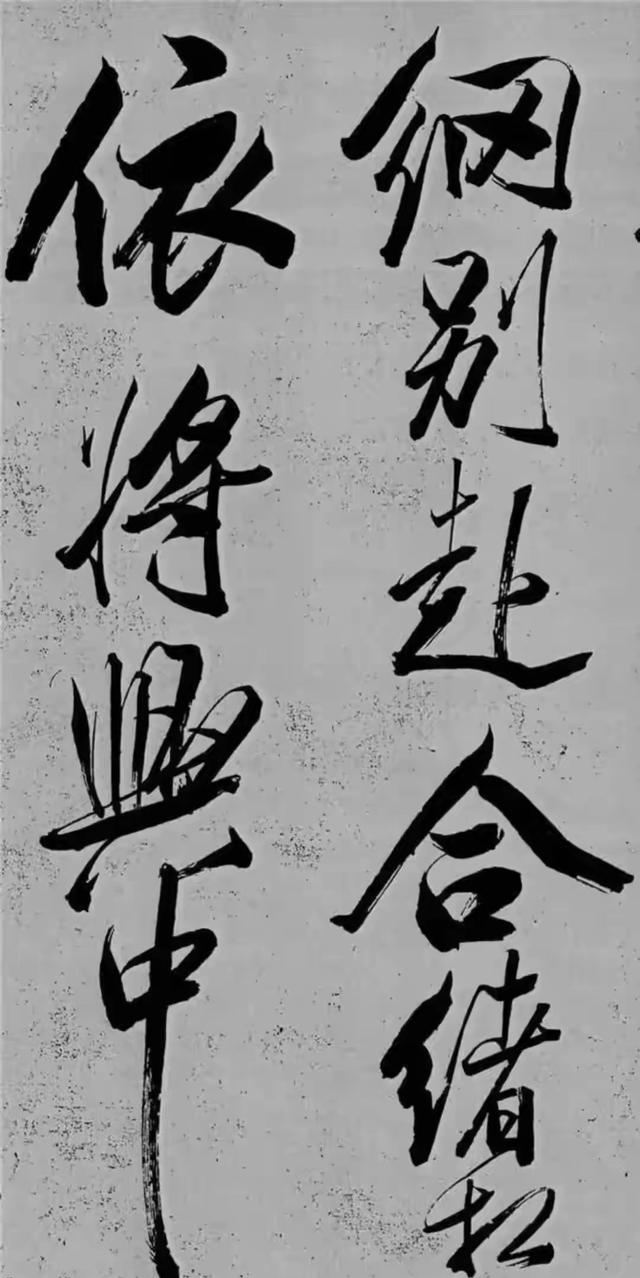 別赴合緒松
依將興中